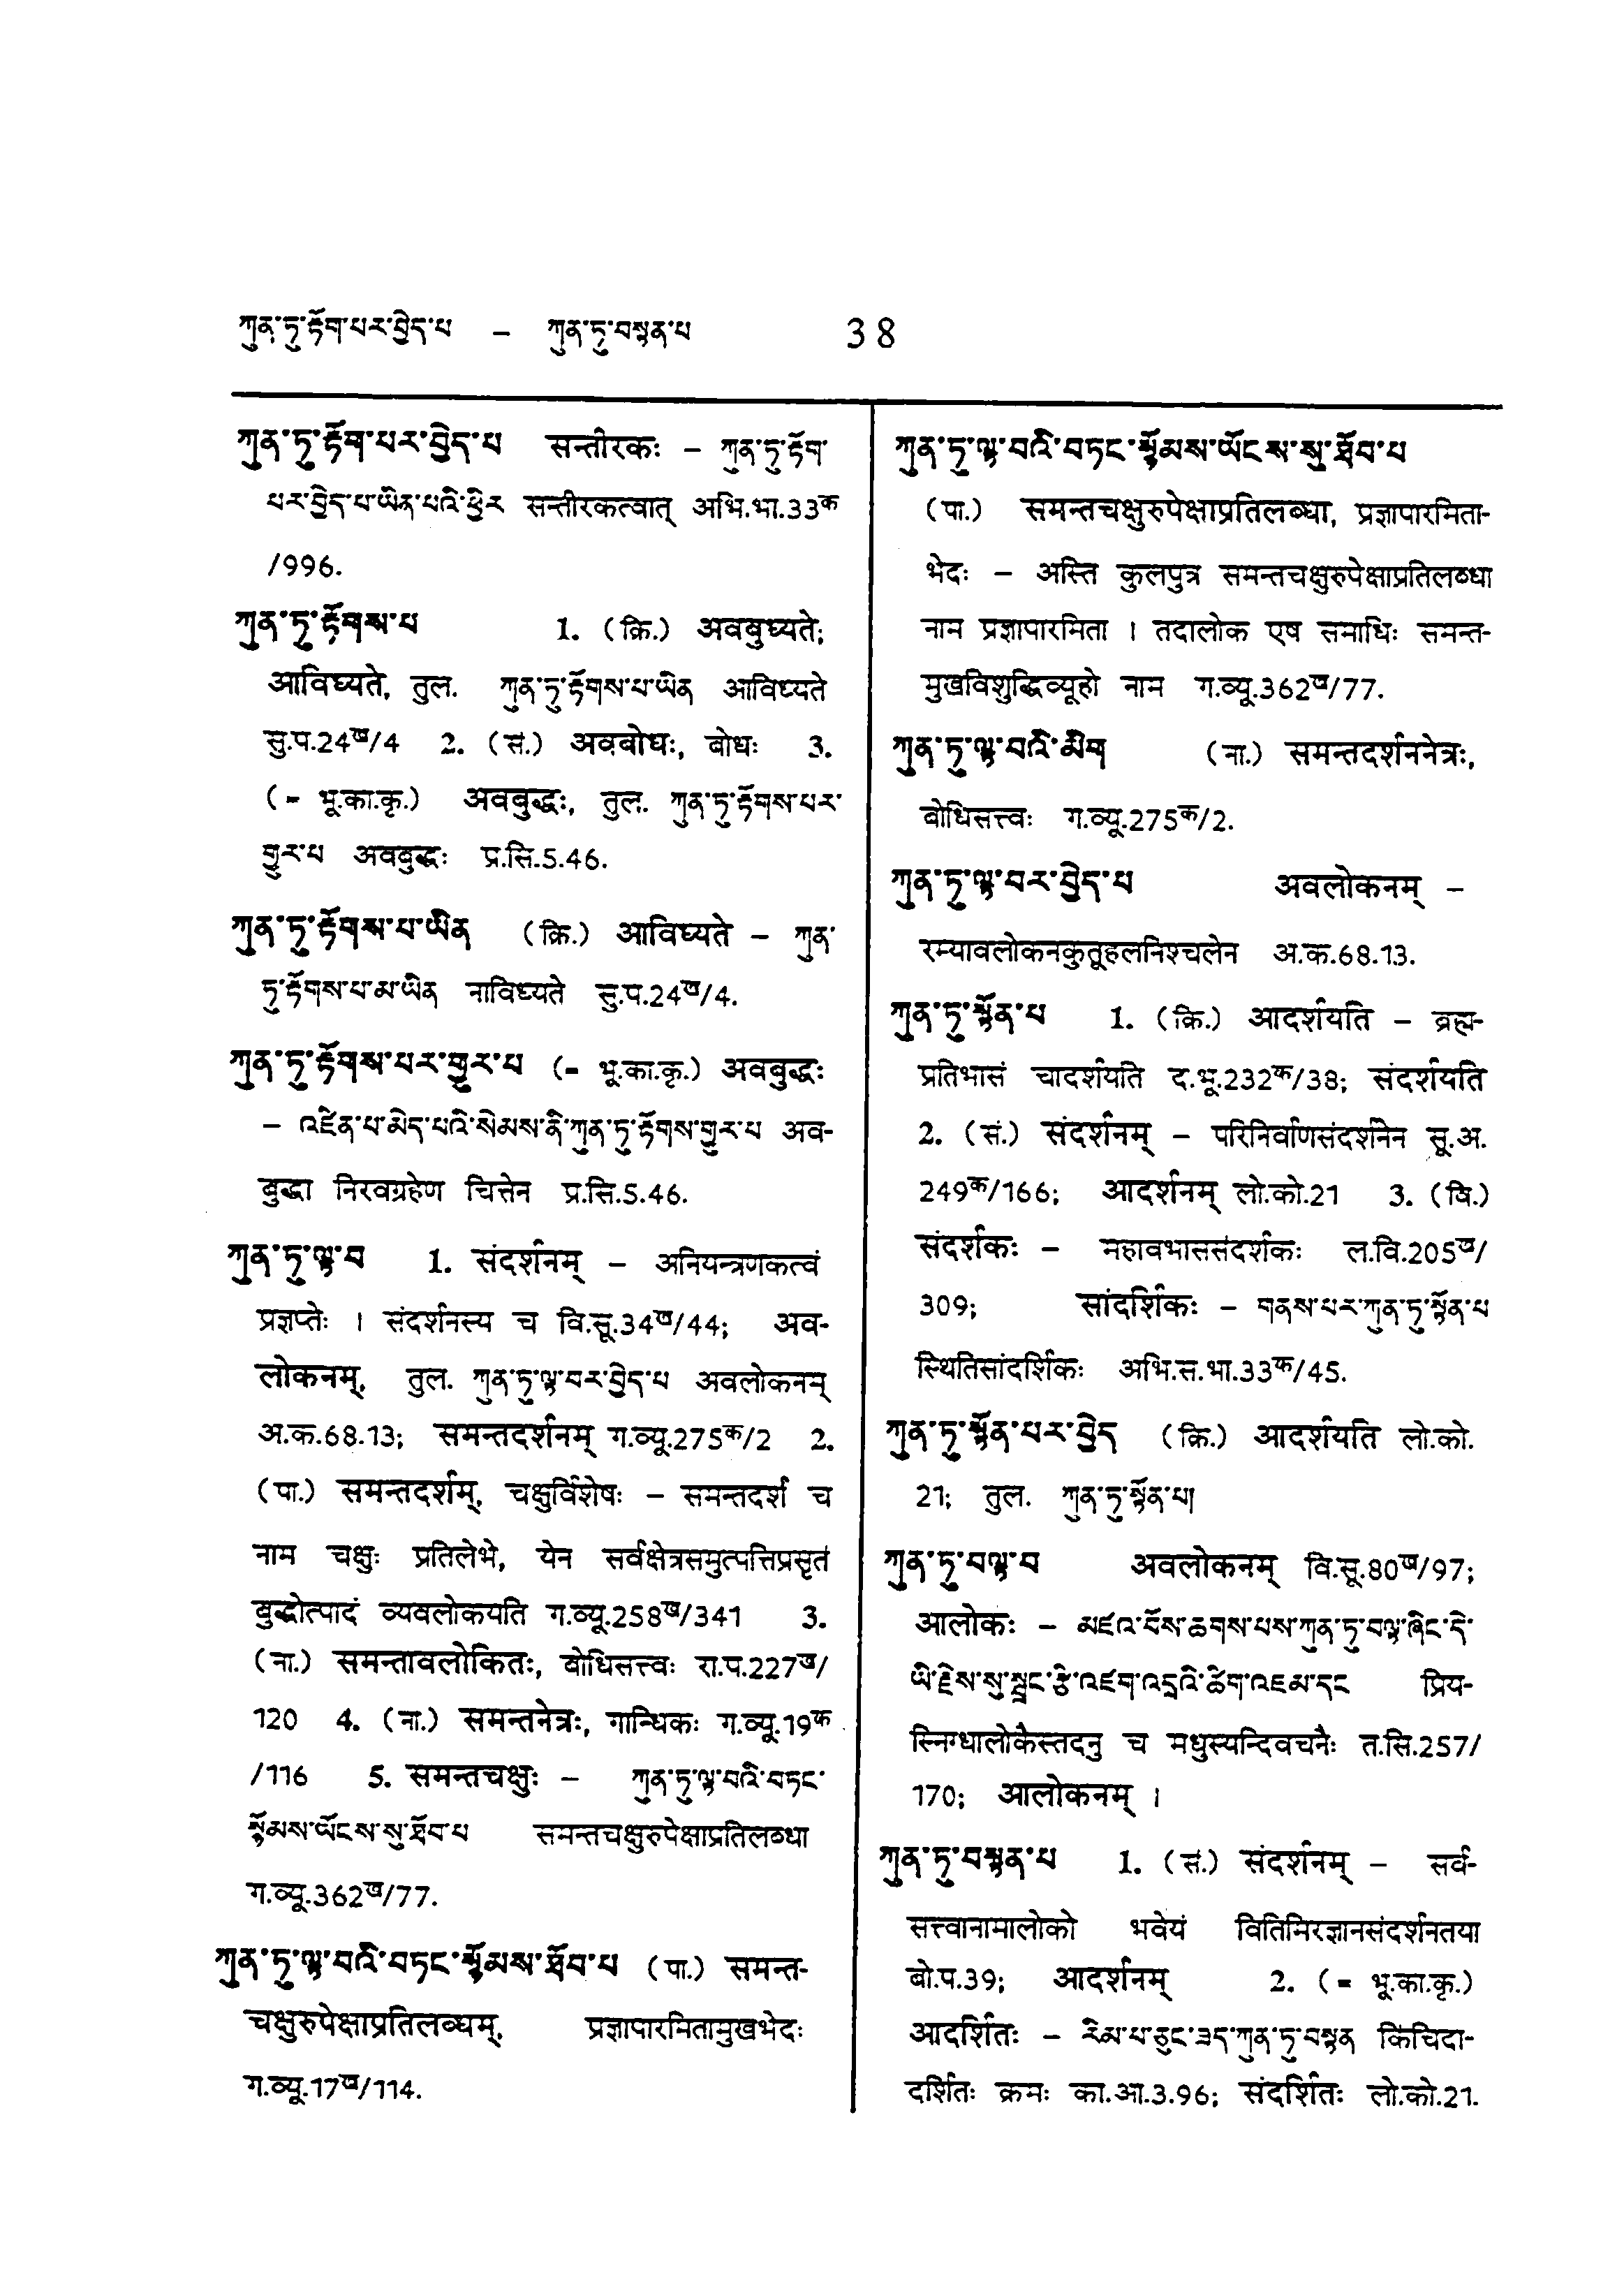 ཀུན་ཏུ་རྟོག་པར་བྱེད་པ – ཀུན་ཏུ་བསྟན་པ 38
ཀུན་ཏུ་རྟོག་པར་བྱེད་པ सन्तीरकः – ཀུན་ཏུ་རྟོག་
པར་བྱེད་པ་ཡིན་པའི་ཕྱིར सन्तीरकत्वात् अभि.भा.33क
/996.
ཀུན་ཏུ་རྟོགས་པ 1. (क्रि.) अवबुध्यते;
आविध्यते, तुल. ཀུན་ཏུ་རྟོགས་པ་ཡིན आविध्यते
सु.प.24ख/4 2. (सं.) अवबोधः, बोधः 3.
(= भू.का.कृ.) अवबुद्धः, तुल. ཀུན་ཏུ་རྟོགས་པར་
གྱུར་པ अवबुद्धः प्र.सि.5.46.
ཀུན་ཏུ་རྟོགས་པ་ཡིན (क्रि.) आविध्यते – ཀུན་
ཏུ་རྟོགས་པ་མ་ཡིན नाविध्यते सु.प.24ख/4.
ཀུན་ཏུ་རྟོགས་པར་གྱུར་པ (= भू.का.कृ.) अवबुद्धः
– འཛིན་པ་མེད་པའི་སེམས་ནི་ཀུན་ཏུ་རྟོགས་གྱུར་པ अव-
बुद्धा निरवग्रहेण चित्तेन प्र.सि.5.46.
ཀུན་ཏུ་ལྟ་བ 1. संदर्शनम् – अनियन्त्रणकत्वं
प्रज्ञप्तेः । संदर्शनस्य च वि.सू.34ख/44; अव-
लोकनम्, तुल. ཀུན་ཏུ་ལྟ་བར་བྱེད་པ अवलोकनम्
अ.क.68.13; समन्तदर्शनम् ग.व्यू.275क/2 2.
(पा.) समन्तदर्शम्, चक्षुर्विशेषः – समन्तदर्शं च
नाम चक्षुः प्रतिलेभे, येन सर्वक्षेत्रसमुत्पत्तिप्रसृतं
बुद्धोत्पादं व्यवलोकयति ग.व्यू.258ख/341 3.
(ना.) समन्तावलोकितः, बोधिसत्त्वः रा.प.227ख/
120 4. (ना.) समन्तनेत्रः, गान्धिकः ग.व्यू.19क
/116 5. समन्तचक्षुः – ཀུན་ཏུ་ལྟ་བའི་བཏང་
སྙོམས་ཡོངས་སུ་ཐོབ་པ समन्तचक्षुरुपेक्षाप्रतिलब्धा
ग.व्यू.362ख/77.
ཀུན་ཏུ་ལྟ་བའི་བཏང་སྙོམས་ཐོབ་པ (पा.) समन्त-
चक्षुरुपेक्षाप्रतिलब्धम्, प्रज्ञापारमितामुखभेदः
ग.व्यू.17ख/114.
ཀུན་ཏུ་ལྟ་བའི་བཏང་སྙོམས་ཡོངས་སུ་ཐོབ་པ
(पा.) समन्तचक्षुरुपेक्षाप्रतिलब्धा, प्रज्ञापारमिता-
भेदः – अस्ति कुलपुत्र समन्तचक्षुरुपेक्षाप्रतिलब्धा
नाम प्रज्ञापारमिता । तदालोक एष समाधिः समन्त-
मुखविशुद्धिव्यूहो नाम ग.व्यू.362ख/77.
ཀུན་ཏུ་ལྟ་བའི་མིག (ना.) समन्तदर्शननेत्रः,
बोधिसत्त्वः ग.व्यू.275क/2.
ཀུན་ཏུ་ལྟ་བར་བྱེད་པ अवलोकनम् –
रम्यावलोकनकुतूहलनिश्चलेन अ.क.68.13.
ཀུན་ཏུ་སྟོན་པ 1. (क्रि.) आदर्शयति – ब्रह्म-
प्रतिभासं चादर्शयति द.भू.232क/38; संदर्शयति
2. (सं.) संदर्शनम् – परिनिर्वाणसंदर्शनेन सू.अ.
249क/166; आदर्शनम् लो.को.21 3. (वि.)
संदर्शकः – महावभाससंदर्शकः ल.वि.205ख/
309; सांदर्शिकः – གནས་པར་ཀུན་ཏུ་སྟོན་པ
स्थितिसांदर्शिकः अभि.स.भा.33क/45.
ཀུན་ཏུ་སྟོན་པར་བྱེད (क्रि.) आदर्शयति लो.को.
21; तुल. ཀུན་ཏུ་སྟོན་པ།
ཀུན་ཏུ་བལྟ་བ अवलोकनम् वि.सू.80ख/97;
आलोकः – མཛའ་བོས་ཆགས་པས་ཀུན་ཏུ་བལྟ་ཞིང་དེ་
ཡི་རྗེས་སུ་སྦྲང་རྩི་འཛག་འདྲའི་ཚིག་འཇམ་དང प्रिय-
स्निग्धालोकैस्तदनु च मधुस्यन्दिवचनैः त.सि.257/
170; आलोकनम् ।
ཀུན་ཏུ་བསྟན་པ 1. (सं.) संदर्शनम् – सर्व-
सत्त्वानामालोको भवेयं वितिमिरज्ञानसंदर्शनतया
बो.प.39; आदर्शनम् 2. (= भू.का.कृ.)
आदर्शितः – རིམ་པ་ཅུང་ཟད་ཀུན་ཏུ་བསྟན किंचिदा-
दर्शितः क्रमः का.आ.3.96; संदर्शितः लो.को.21.